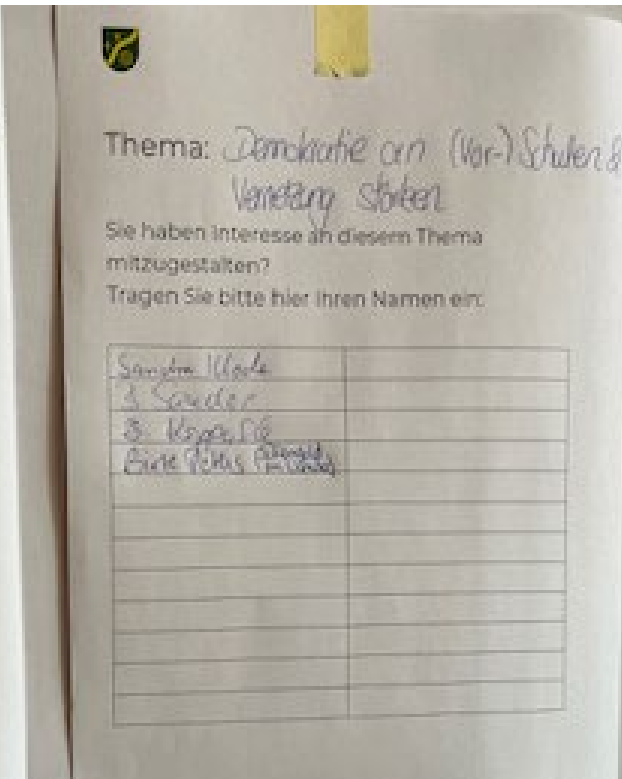 Thema: Demokratie an (Vor-) Schulen &
Vernetzung stärken
Sie haben Interesse an diesem Thema
mitzugestalten?
Tragen Sie bitte hier Ihren Namen ein:
Sandra
Sander
Birte